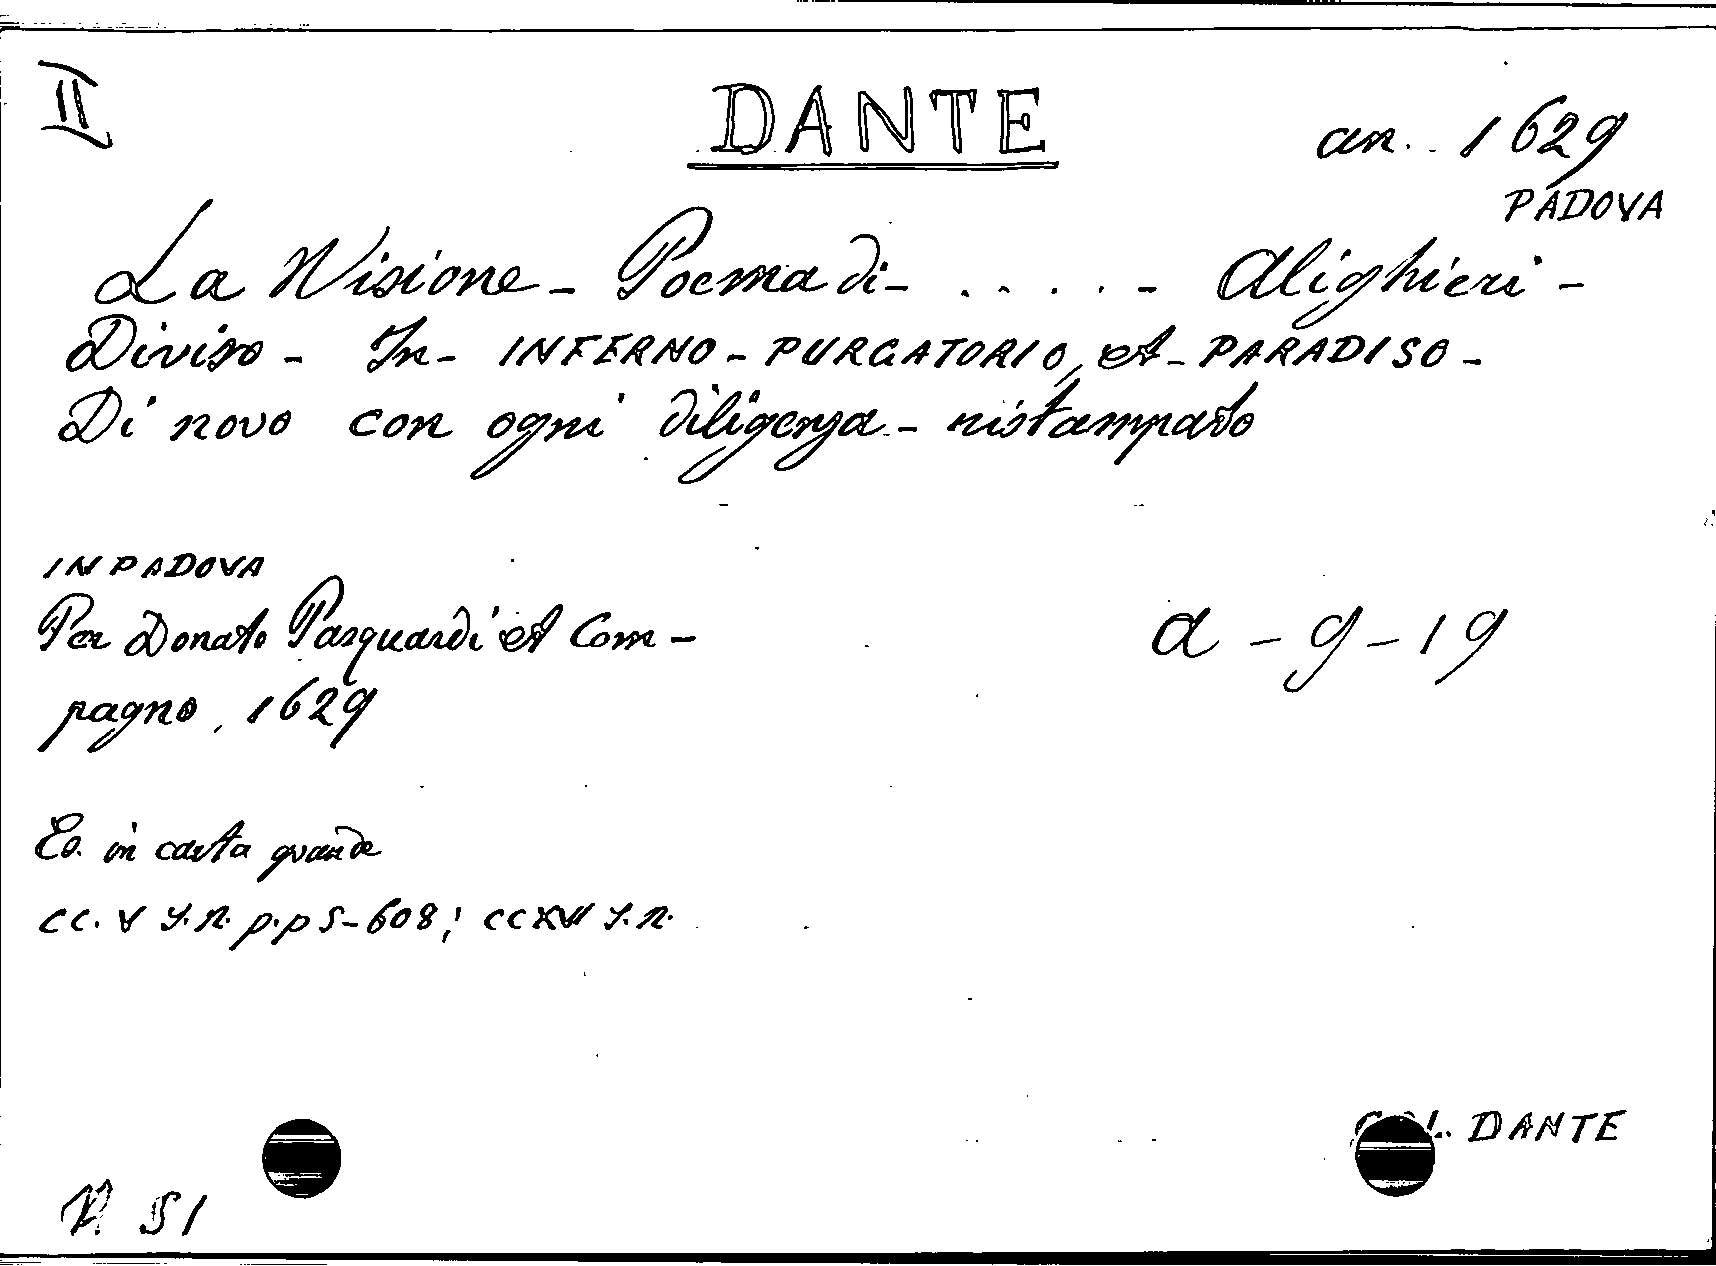 II
DANTE
an. 1629
PADOVA
La Visione - Poema di - ..... - Alighieri -
Diviso - In - INFERNO - PURGATORIO, et - PARADISO -
Di novo con ogni diligenza - ristampato
IN PADOVA
Per Donato Pasquardi et Com -
pagno, 1629
a - 9 - 19
Es. in carta grande
cc. V s.n. p.p 5-608; CCXVI s.n.
COL. DANTE
51